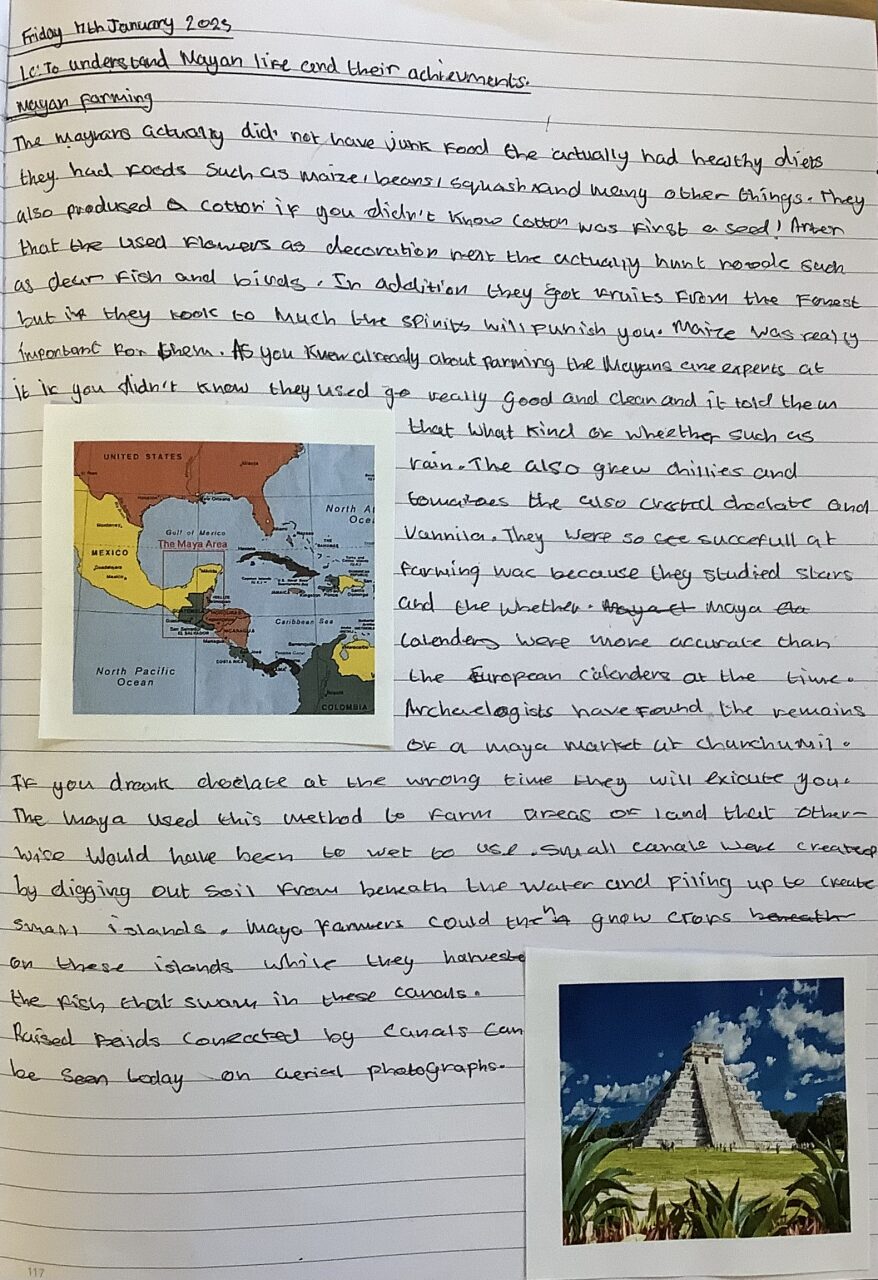 Friday 17th January 2025
LC: To understand Mayan life and their achievments.
Mayan farming
The mayans actually did not have junk food the actually had healthy diets
they had foods such as maize, beans, squash and many other things. They
also prodused a cotton if you didn't know cotton was first a seed! After
that the used flowers as decoration next the actually hunt such
as dear fish and birds. In addition they got fruits from the forest
but if they took to much the spirits will punish you. Maize was really
important for them. As you knew already about farming the Mayans are experts at
it if you didn't know they used go really good and clean and it told them
that what kind of wheither such as
rain. The also grew chillies and
tomatoes the also creted choclate and
Vannila. They were so see succefull at
farming wac because they studied stars
and the whether. Maya
Calenders were more accurate than
the European calenders at the time.
Archaelogists have found the remains
of a maya market at chunchumil.
If you drank choclate at the wrong time they will exicute you.
The Maya used this method to farm areas of land that other-
wise would have been to wet to use. Small canals were created
by digging out soil from beneath the water and piling up to create
small islands. Maya farmers could then grow crops beneath
on these islands while they harveste
the fish that swam in these canals.
Raised feilds conected by canals can
be seen today on aerial photographs.
UNITED STATES
Gulf of Mexico
The Maya Area
MEXICO
North A
Ocea
Caribbean Sea
North Pacific
Ocean
GUATEMALA
HONDURAS
EL SALVADOR
NICARAGUA
COSTA RICA
COLOMBIA
117